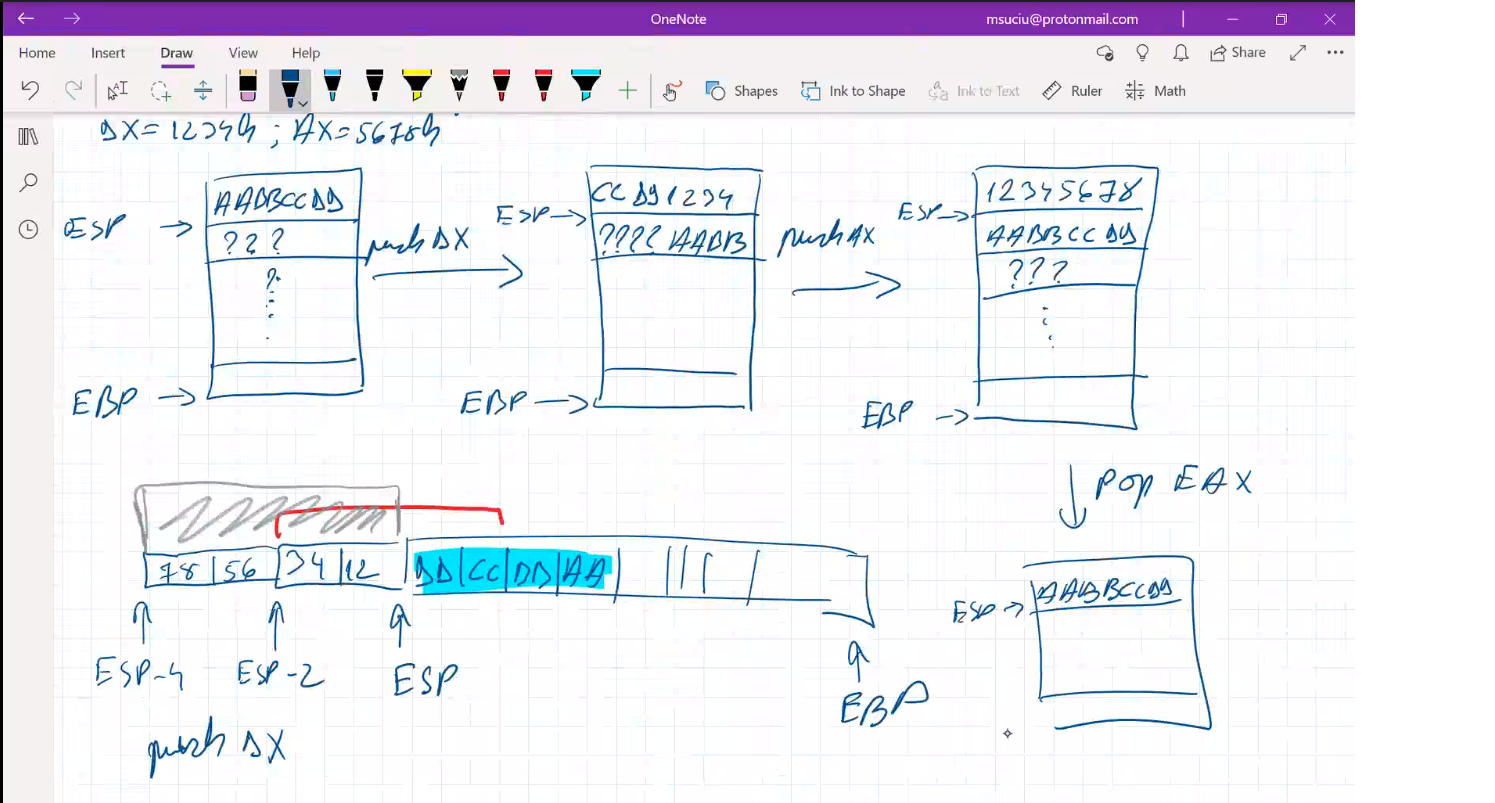 OneNote
msuciu@protonmail.com
Home Insert Draw View Help
Share
Shapes
Ink to Shape
Ink to Text
Ruler
Math
DX = 1234h ; AX = 5678h
ESP → AABBCCDD
???
?
EBP →
push DX
ESP → CCDD1234
???? AABB
EBP →
push AX
ESP → 12345678
AABBCCDD
???
EBP →
pop EAX
78 | 56 | 34 | 12 | DD | CC | BB | AA
ESP-4 ESP-2 ESP
EBP
ESP → AABBCCDD
push DX